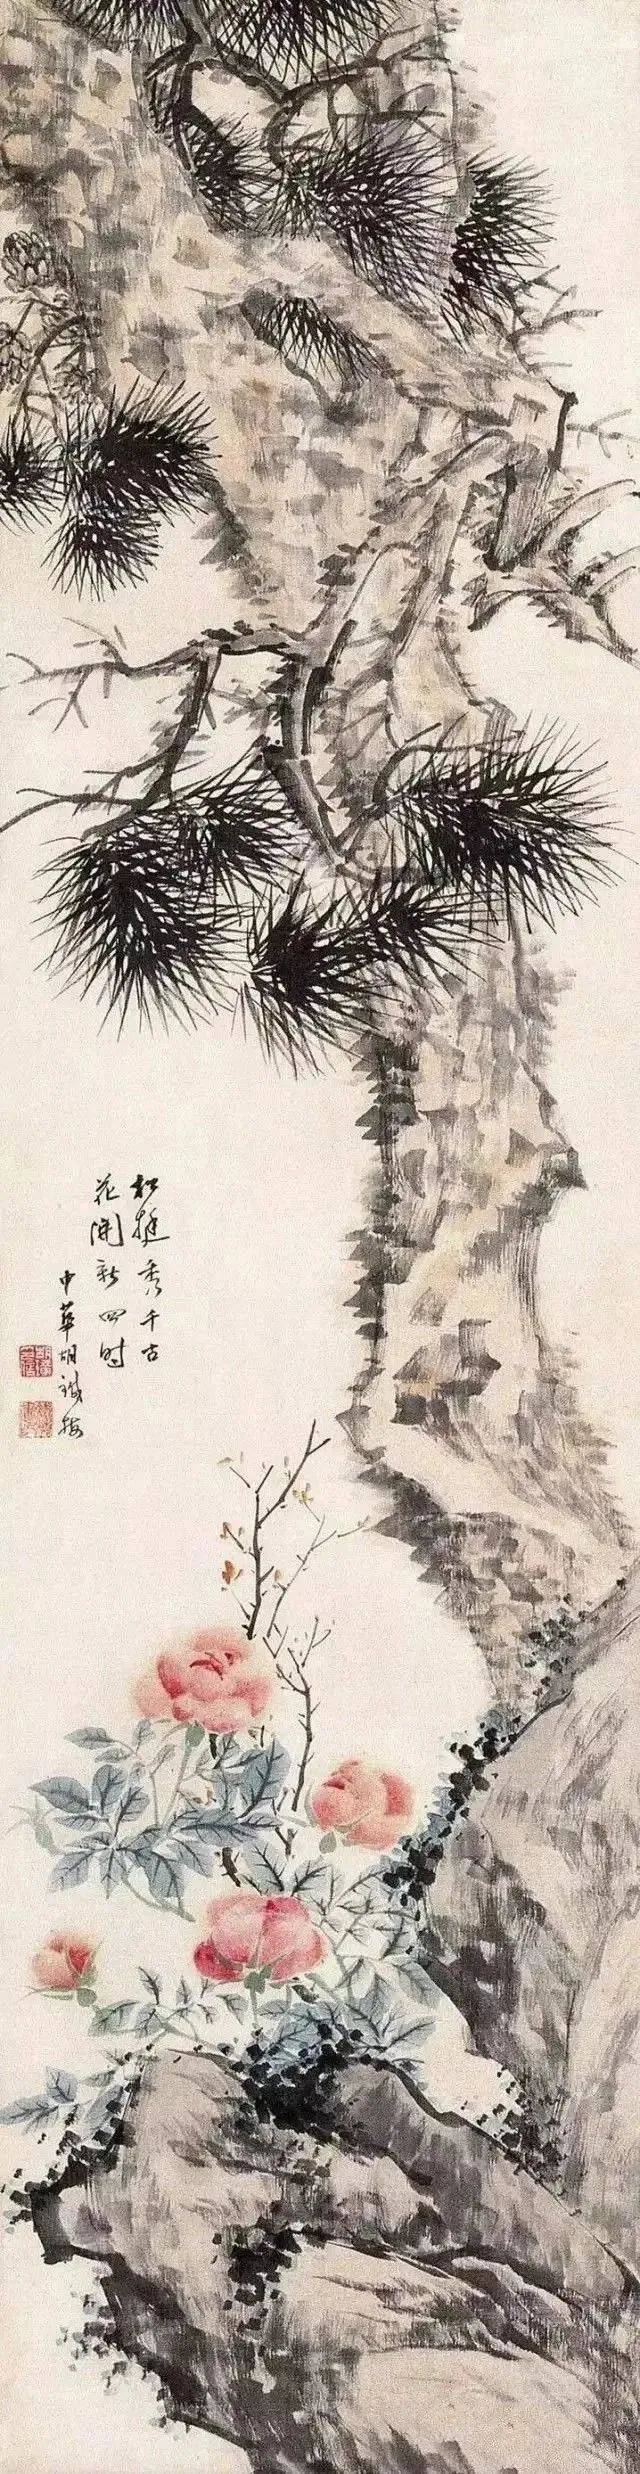 松挺秀千古
花開新四时
中華胡鐵梅